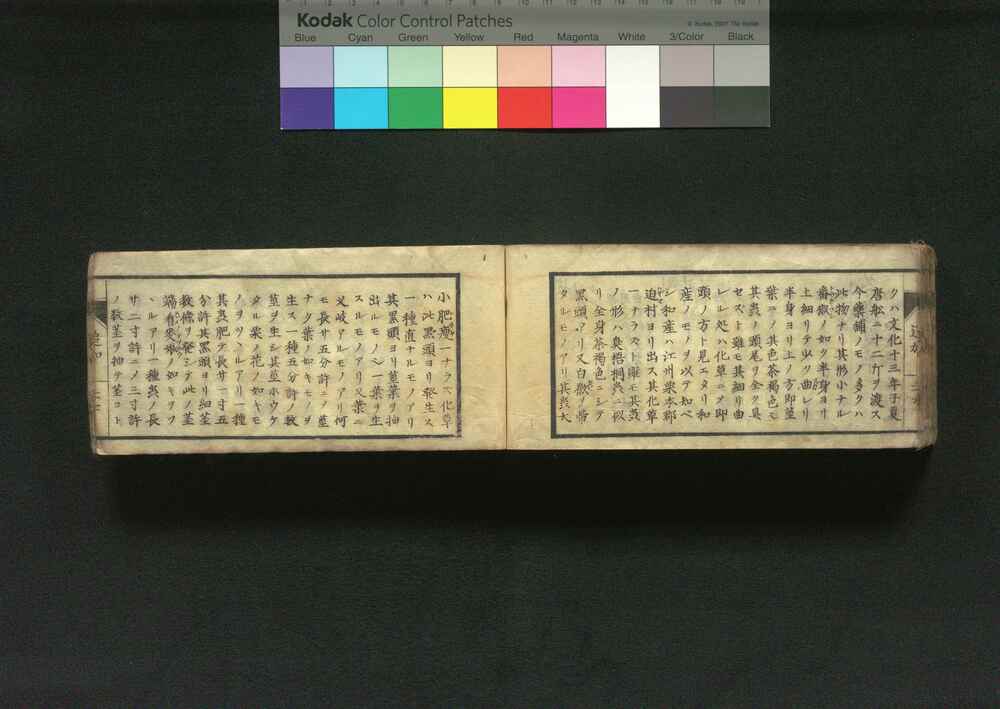 Kodak Color Control Patches
© Kodak, 2007 TM: Kodak
Blue Cyan Green Yellow Red Magenta White 3/Color Black
クハ文化十三年子夏
唐舩ニ十二斤ヲ渡ス
今藥鋪ノモノ多クハ
此物ナリ其形小ナル
蠶ノ如ク半身ヨリ
上細リテ以ク曲レリ
半身ヨリ上ノ方即莖
葉ニノ其色茶褐色モ
其蟲ノ頭尾リ全ク具
セスト雖モ其細リ曲
レル処ハ化草ニヲ即
頭ノ方ト見エタリ和
産ノモノヲ以テ知ベ
シ和産ハ江州栗本郡
迫村ヨリ出ス其化草
一ナラスト雖モ其蟲
ノ形ハ臭梧桐蟲ニ似
リ全身茶褐色ニシテ
黒頭アリ又白緻ヲ帯
タルモノアリ其蟲大
小肥瘦一ナラス化草
ハ此黒頭ヨリ發生ス
一種直ナルモノアリ
其黒頭ヨリ莖葉ヲ抽
出ルモノ一葉リ生
スルモノアリ又葉ニ
又岐アルモノアリ何
モ長サ五分許ニノ莖
ナク葉ノ如キモヲ
生ス一種五分許ノ數
莖ヲ生シ其莖小ウケ
タル栗ノ花ノ如キモ
ノヲツヽルアリ一種
其蟲肥テ長サ一寸五
分許其黒頭ヨリ細莖
數條ヲ發シテ此ノ莖
端麥ノ如キヲツ
ヽルアリ一種蟲ノ長
サ二寸許ニノ三寸許
ノ數莖ヲ抽テ莖コト
追加